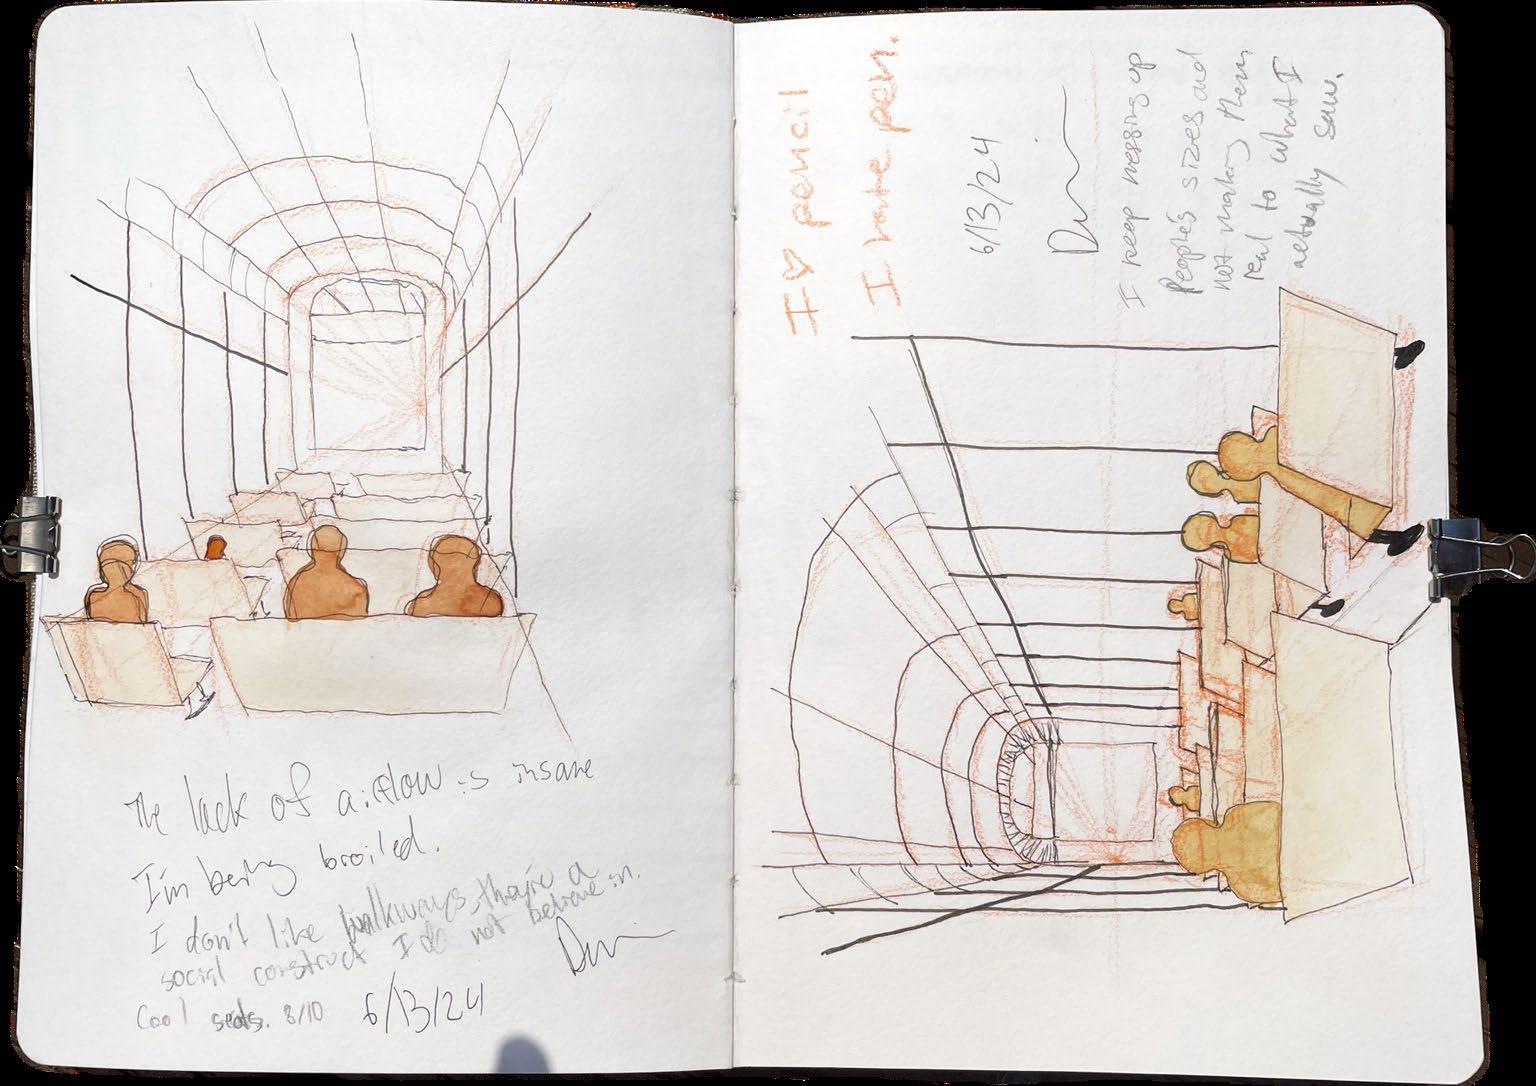 The lack of airflow is insane
I'm being broiled.
I don't like walkways, they're a
social construct I do not believe in.
Cool seats. 8/10
6/13/24
I ♡ pencil
I hate pen.
6/13/24
I keep messing up
people's sizes and
not making them
real to what I
actually saw.